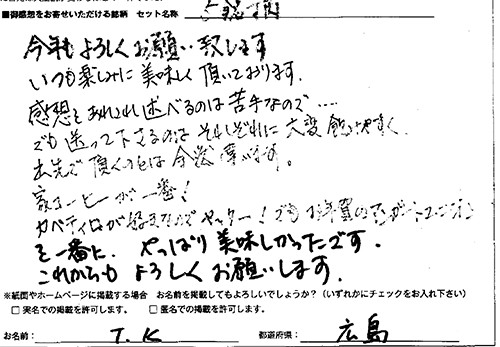 ■御感想をお寄せいただける銘柄 セット名称
今年もよろしくお願い致します
いつも楽しみに美味しく頂いております。
感想をあれこれ述べるのは苦手なので‥‥
でも送って下さるのはそれぞれに大変飲みやすく、
出先で頂くのとは全然違います。
家コーヒーが一番!
が好きなので ヤッター! でも
を一番に、やっぱり美味しかったです。
これからもよろしくお願いします。
※紙面やホームページに掲載する場合 お名前を掲載してもよろしいでしょうか?(いずれかにチェックをお入れ下さい)
□ 実名での掲載を許可します。 □ 匿名での掲載を許可します。
お名前: T.K 都道府県: 広島